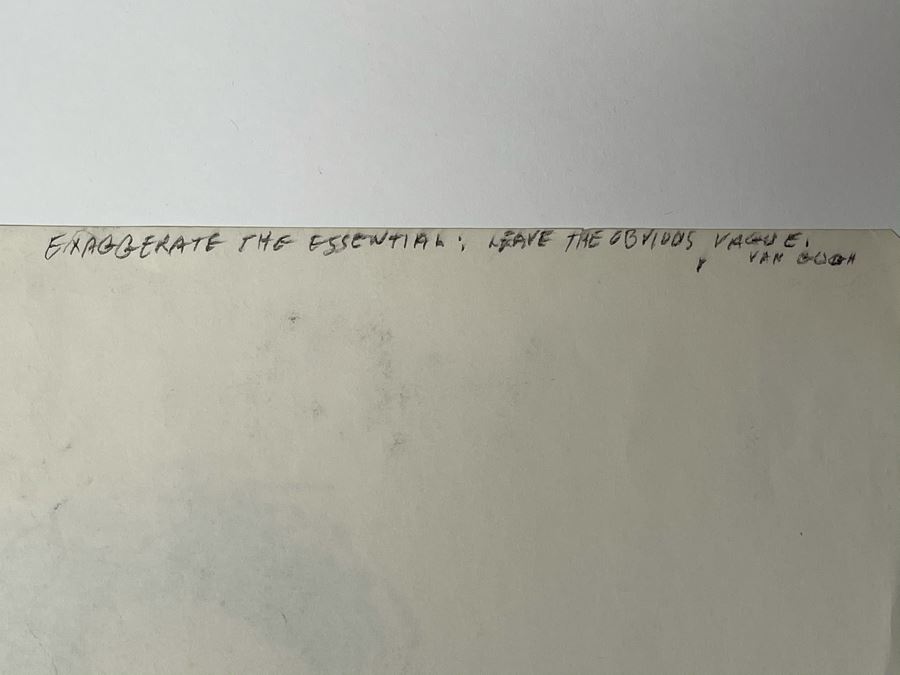 EXAGGERATE THE ESSENTIAL; LEAVE THE OBVIOUS VAGUE.
VAN GOGH